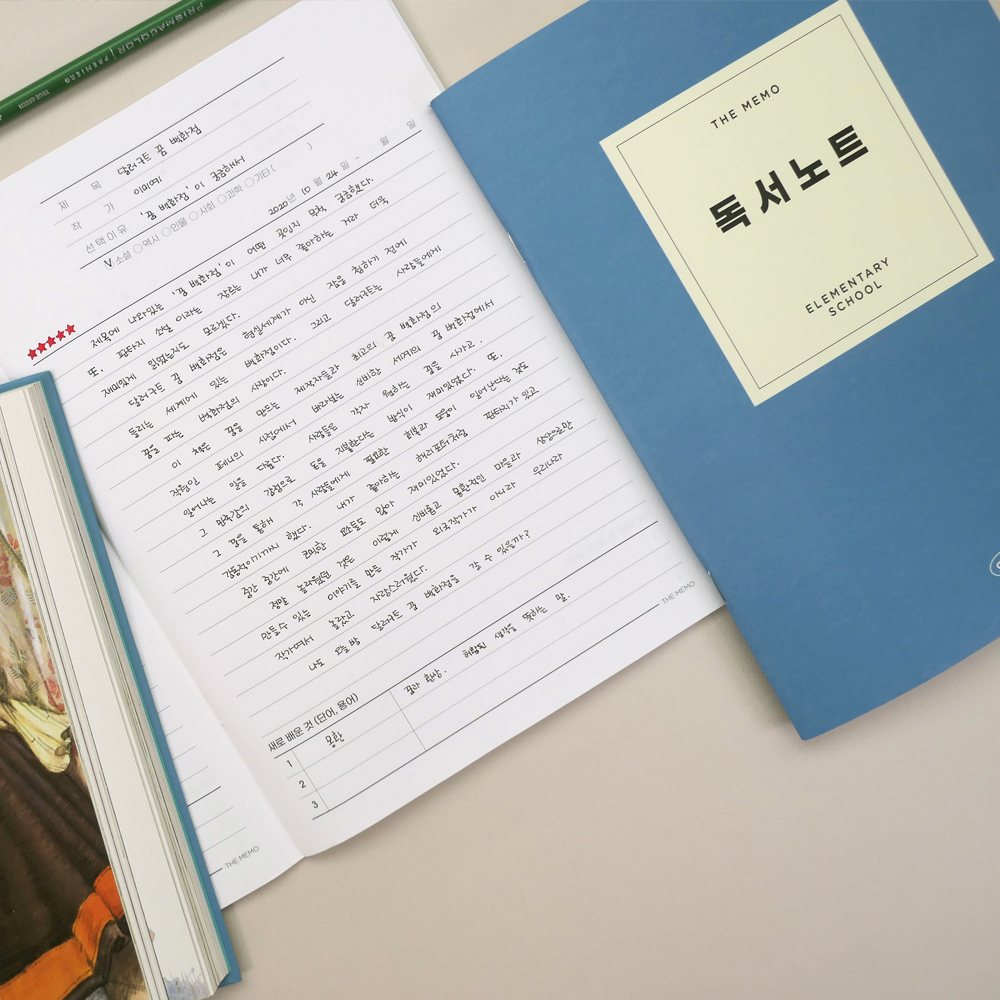 PRISMACOLOR PREMIER
TRUE GREEN
제 목 달러구트 꿈 백화점
작 가 이미예
선택이유 '꿈 백화점'이 궁금해서
V 소설 ○역사 ○인물 ○사회 ○과학 ○기타 ( )
2020년 10월 24일 - 월 일
제목에 나와있는 '꿈 백화점'이 어떤 곳인지 무척 궁금했다.
또, 판타지 소설 이라는 장르는 내가 너무 좋아하는 거라 더욱
재미있게 읽었는지도 모르겠다.
달러구트 꿈 백화점은 현실세계가 아닌 잠을 청하기 전에
들리는 세계에 있는 백화점이다. 그리고 달러구트는 사람들에게
꿈을 파는 백화점의 사장이다.
이 책은 꿈을 만드는 제작자들과 최고의 꿈 백화점의
직원인 페니의 시점에서 바라보는 신비한 세계의 꿈 백화점에서
일어나는 일을 다룬다. 사람들은 각자 원하는 꿈을 사가고,
그 만족감의 감정으로 돈을 지불한다는 방식이 재미있었다. 또,
그 꿈을 통해 각 사람들에게 필요한 회복과 도움이 일어난다는 것도
감동적이기까지 했다. 내가 좋아하는 해리포터처럼 판타지가 있고
중간 중간에 코믹한 요소들도 많아 재미있었다.
정말 놀라웠던 것은 이렇게 신비롭고 몽환적인 마을과 상상으로만
만들수 있는 이야기를 만든 작가가 외국작가가 아니라 우리나라
작가여서 놀랐고 자랑스러웠다.
나도 오늘밤 달러구트 꿈 백화점을 갈 수 있을까?
새로 배운 것 (단어, 용어)
1 몽환 꿈과 환상. 허황된 생각을 뜻하는 말.
2
3
THE MEMO
THE MEMO
THE MEMO
독서노트
ELEMENTARY
SCHOOL